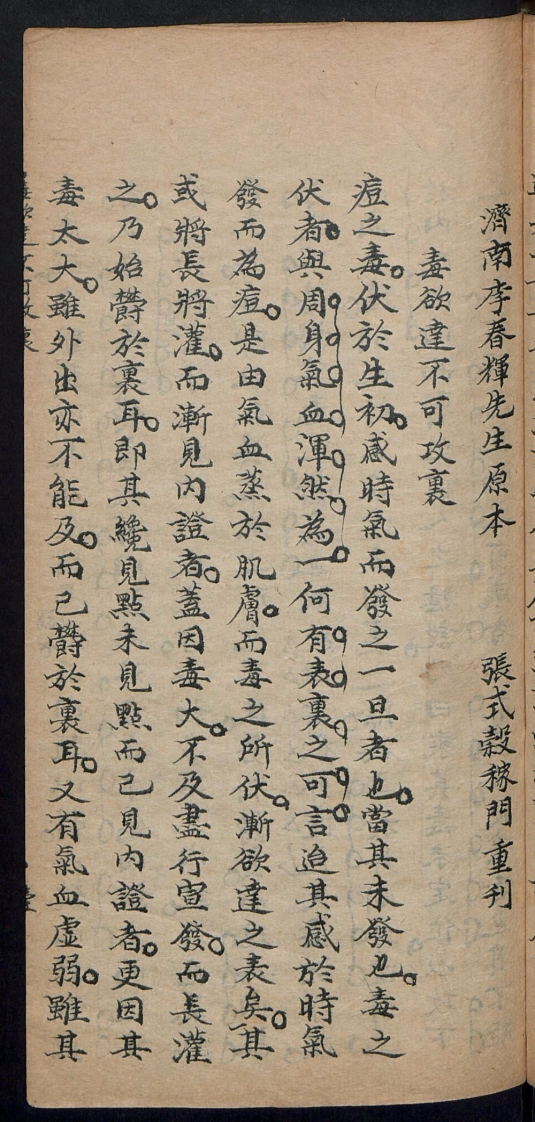 濟南李春輝先生原本 張式穀稼門重刊
毒欲達不可攻裏
痘之毒。伏於生初。感時氣而發之一旦者也。當其未發也。毒之
伏者。與周身氣血渾然為一。何有表裏之可言。迨其感於時氣
發而為痘。是由氣血蒸於肌膚。而毒之所伏。漸欲達之表矣。其
或將長將灌。而漸見內證者。蓋因毒大。不及盡行宣發。而長灌
之。乃始欝於裏耳。即其纔見點未見點而已見內證者。更因其
毒太大。雖外出亦不能及。而已欝於裏耳。又有氣血虛弱。雖其